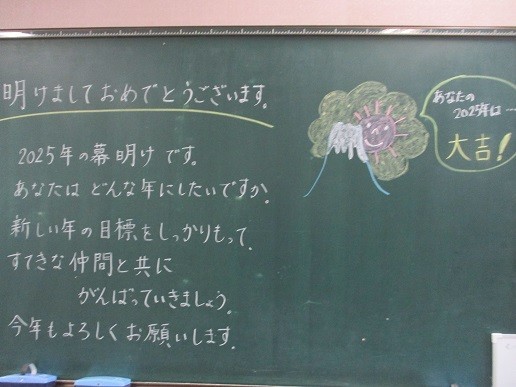 明けましておめでとうございます。
2025年の幕明けです。
あなたは どんな年にしたいですか。
新しい年の目標をしっかりもって、
すてきな仲間と共に
がんばっていきましょう。
今年もよろしくお願いします。
あなたの
2025年は…
大吉!